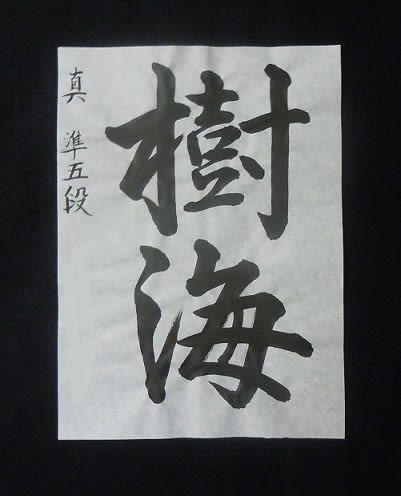 樹海
真 準五段